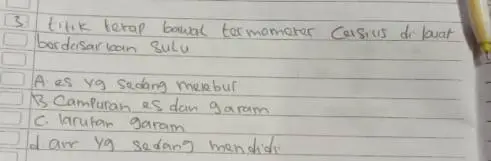 3 titik tetap bawal termometer Celsius di buat
berdasarkan suhu
A. es yg sedang melebur
B Campuran es dan garam
C. larutan garam
d air yg sedang mendidi